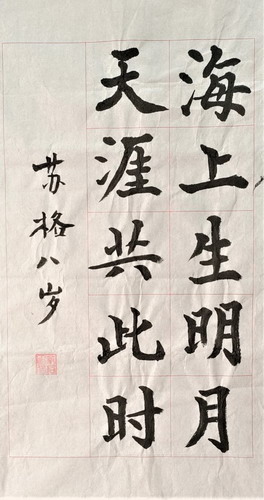 海上生明月
天涯共此时
苏格八岁